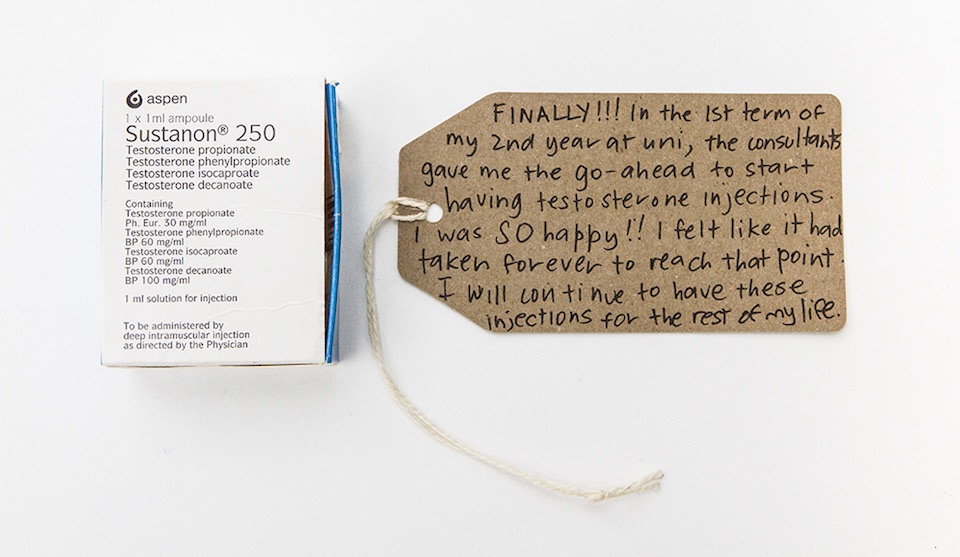 aspen
1 x 1ml ampoule
Sustanon® 250
Testosterone propionate
Testosterone phenylpropionate
Testosterone isocaproate
Testosterone decanoate
Containing
Testosterone propionate
Ph. Eur. 30 mg/ml
Testosterone phenylpropionate
BP 60 mg/ml
Testosterone isocaproate
BP 60 mg/ml
Testosterone decanoate
BP 100 mg/ml
1 ml solution for injection
To be administered by
deep intramuscular injection
as directed by the Physician
FINALLY!!! In the 1st term of
my 2nd year at uni, the consultants
gave me the go-ahead to start
having testosterone injections.
I was SO happy!! I felt like it had
taken forever to reach that point.
I will continue to have these
injections for the rest of my life.